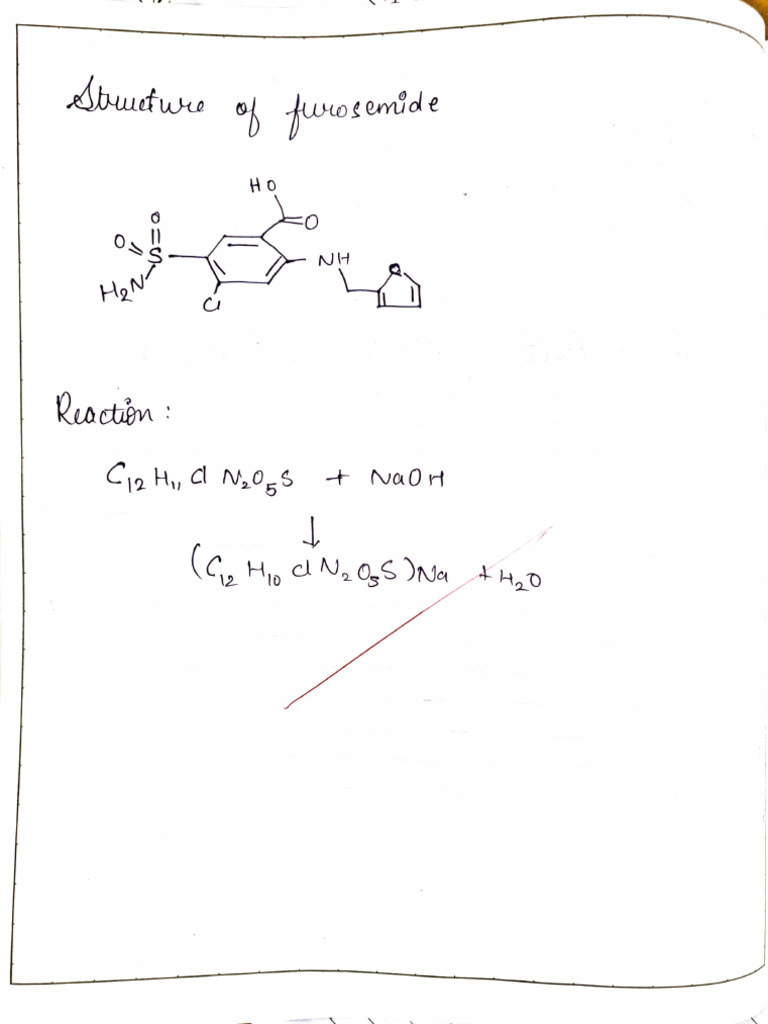 Structure of furosemide
HO
O
O
O
S
NH
H₂N
O
Cl
Reaction :
C₁₂H₁₁ClN₂O₅S + NaOH
↓
(C₁₂H₁₀ClN₂O₅S)Na + H₂O